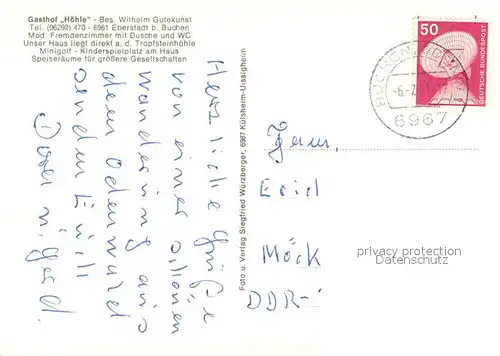 Gasthof „Höhle" - Bes. Wilhelm Gutekunst
Tel. (06292) 470 - 6961 Eberstadt b. Buchen
Mod. Fremdenzimmer mit Dusche und WC
Unser Haus liegt direkt a. d. Tropfsteinhöhle
Minigolf - Kinderspielplatz am Haus
Speiseräume für größere Gesellschaften
Herzliche Grüße
von einer schönen
Wanderung aus
dem Odenwald
senden Euch
Foto u. Verlag Siegfried Würzberger, 6987 Külsheim-Uissigheim
50
DEUTSCHE BUNDESPOST
BUCHEN
6967
Fam.
Erid
Möck
DDR-
privacy protection
Datenschutz